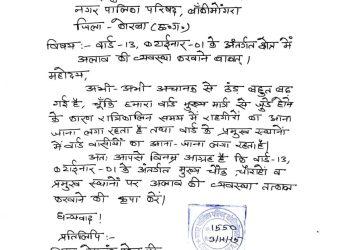 नगर पालिका परिषद, बाँकीमोंगरा
जिला - कोरबा (छ०ग०)
विषय:- वार्ड-13, क्वाईनार-01 के अंतर्गत क्षेत्र में
अलाव की व्यवस्था करवाने बाबत्।
महोदय,
अभी-अभी अचानक से ठंड बहुत बढ़
गई है, चूँकि हमारा वार्ड मुख्य मार्ग से जुड़े होने
के कारण रात्रिकालिन समय में राहगीरों का आना
जाना लगा रहता है तथा वार्ड के प्रमुख स्थानों
में वार्ड वासीयों का आना-जाना लगा रहता है।
अतः आपसे विनम्र आग्रह है कि वार्ड-13,
क्वाईनार-01 के अंतर्गत मुख्य चौक, चौराहों व
प्रमुख स्थानों पर अलाव की व्यवस्था तत्काल
करवाने की कृपा करें।
धन्यवाद!
प्रतिलिपि:-
1550